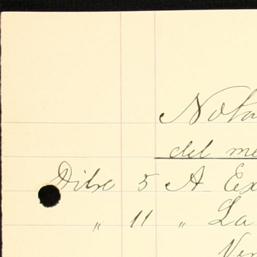 Nota
del me
Dibre 5 A Ex
" 11 " La
Ven